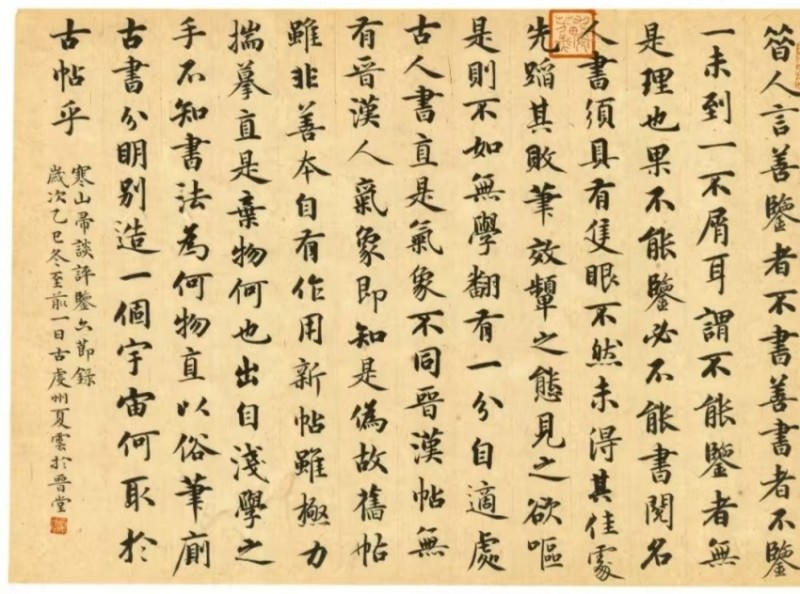 昝人言善鑒者不書善書者不鑒
一未到一不屑耳謂不能鑒者無
是理也果不能鑒必不能書閱名
人書須具有隻眼不然未得其佳處
先蹈其敗筆效顰之態見之欲嘔
是則不如無學翻有一分自適處
古人書直是氣象不同晉漢帖無
有晉漢人氣象即知是偽故舊帖
雖非善本自有作用新帖雖極力
揣摹直是棄物何也出自淺學之
手不知書法為何物直以俗筆廁
古書分明別造一個宇宙何取於
古帖乎
寒山帚談評鑒六節錄
歲次乙巳冬至前一日古虔州夏雲於晉堂